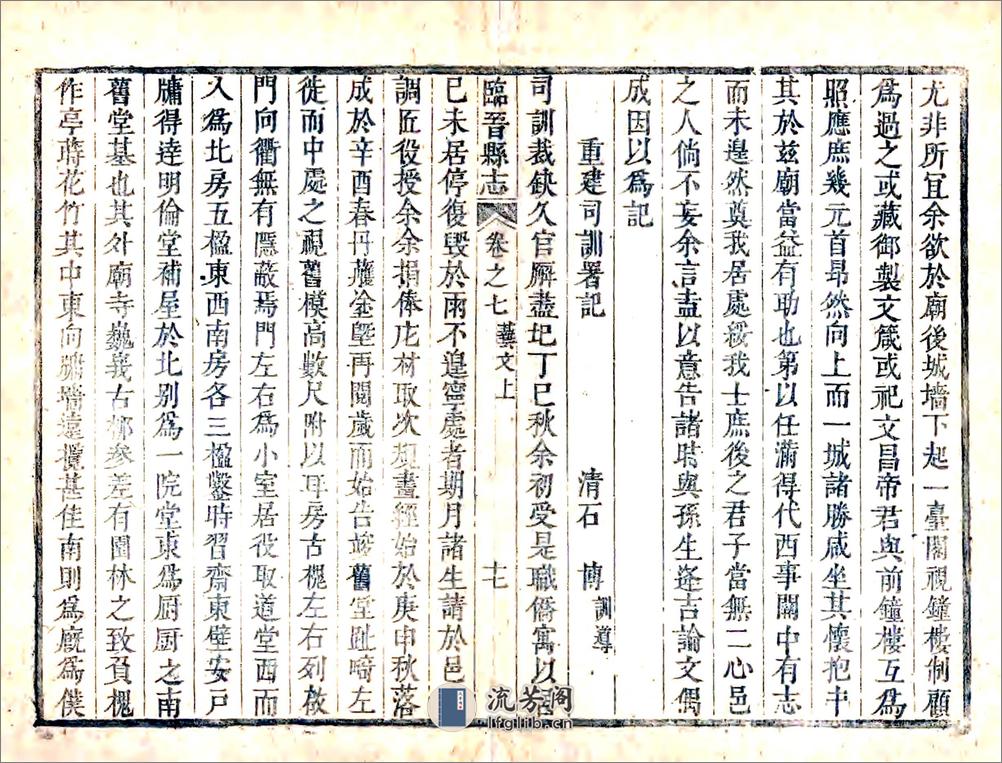 尤非所宜余欲於廟後城墻下起一臺閣視鐘樓制顧
爲過之或藏御製文箴或祀文昌帝君與前鐘樓互爲
照應庶幾元首昂然向上而一城諸勝咸坐其懷抱中
其於兹廟當益有助也第以任滿得代西事關中有志
而未遑然奠我居處綏我士庶後之君子當無二心邑
之人倘不妄余言盍以意告諸時與孫生逢吉論文偶
成因以爲記
重建司訓署記 清石 博訓導
司訓裁缺久官廨盡圮丁巳秋余初受是職僑寓以居
臨晉縣志 卷之七 藝文上 十七
己未居停復毁於雨不遑寧處者期月諸生請於邑
調匠役授余余捐俸庀材取次規畫經始於庚申秋落
成於辛酉春丹雘塗墍再閱歲而始告竣舊堂趾啼左
徙而中處之視舊模高數尺附以耳房古槐左右列敞
門向衢無有隱蔽焉門左右爲小室居役取道堂西而
入爲北房五楹東西南房各三楹鑿時習齋東壁安戸
牖得達明倫堂補屋於北别爲一院堂東爲厨厨之南
舊堂基也其外廟寺巍峩古柳參差有園林之致負槐
作亭蒔花竹其中東向瞻墻遠攬甚佳南則爲廐爲僕
流芳阁
lfglib.cn